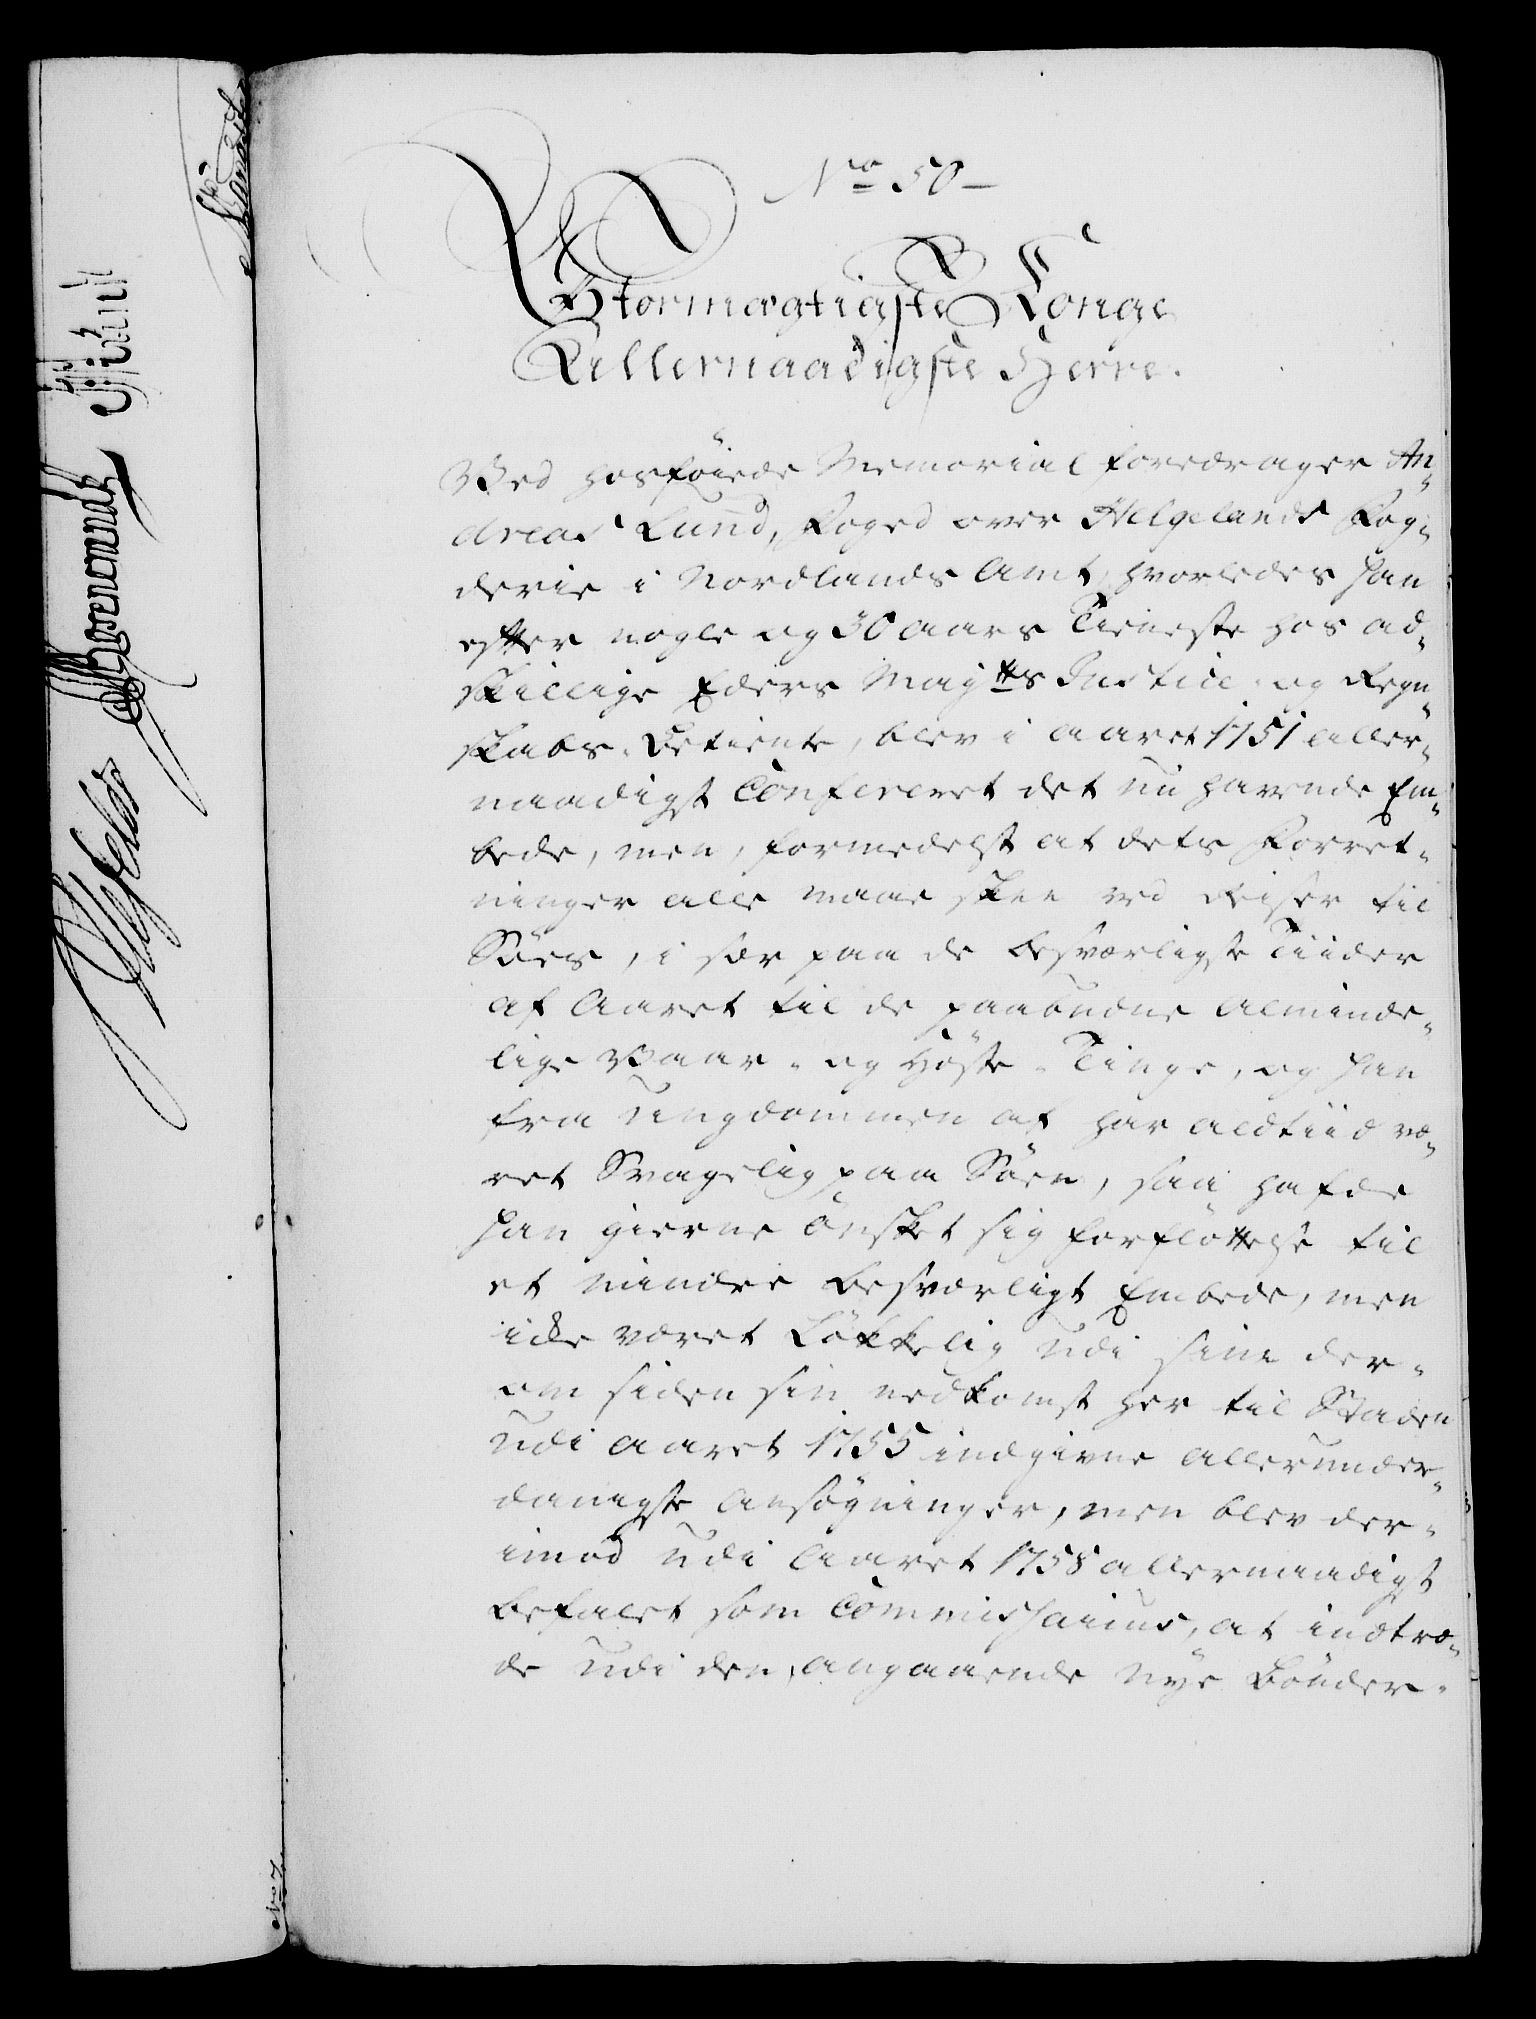 No 50
Stormægtigste Konge
Allernaadigste Herre.
Ved hosføiede Memorial foredrager An-
dreas Lund, Foged over Helgelands Fog-
derie i Nordlands Amt, hvorledes han
efter nogle og 30 aars Tieneste hos ad-
skillige Eders Majts Justice- og Regn-
skabs-Betiente, blev i aaret 1751 aller-
naadigst Confereret det nu havende Em-
bede, men, formedelst at dets Forret-
ninger alle maae skee ved Reiser til
Søes, i sær paa de besværligste Tiider
af Aaret til de paabudne alminde-
lige Vaar- og Høste-Tinge, og han
fra Ungdommen af har altiid væ-
ret Svagelig paa Søen, saa hafde
han gierne ønsket sig forfløttelse til
et mindre besværligt Embede, men
icke været Løkkelig udi sine der-
om siden sin nedkomst her til Staden
udi aaret 1755 indgivne allerunder-
danigste Ansøgninger, men blev der-
imod udi Aaret 1758 allernaadigst
befalet som Commissarius, at indtræ-
de udi den, angaaende nye Bønder-
Rosenkrands